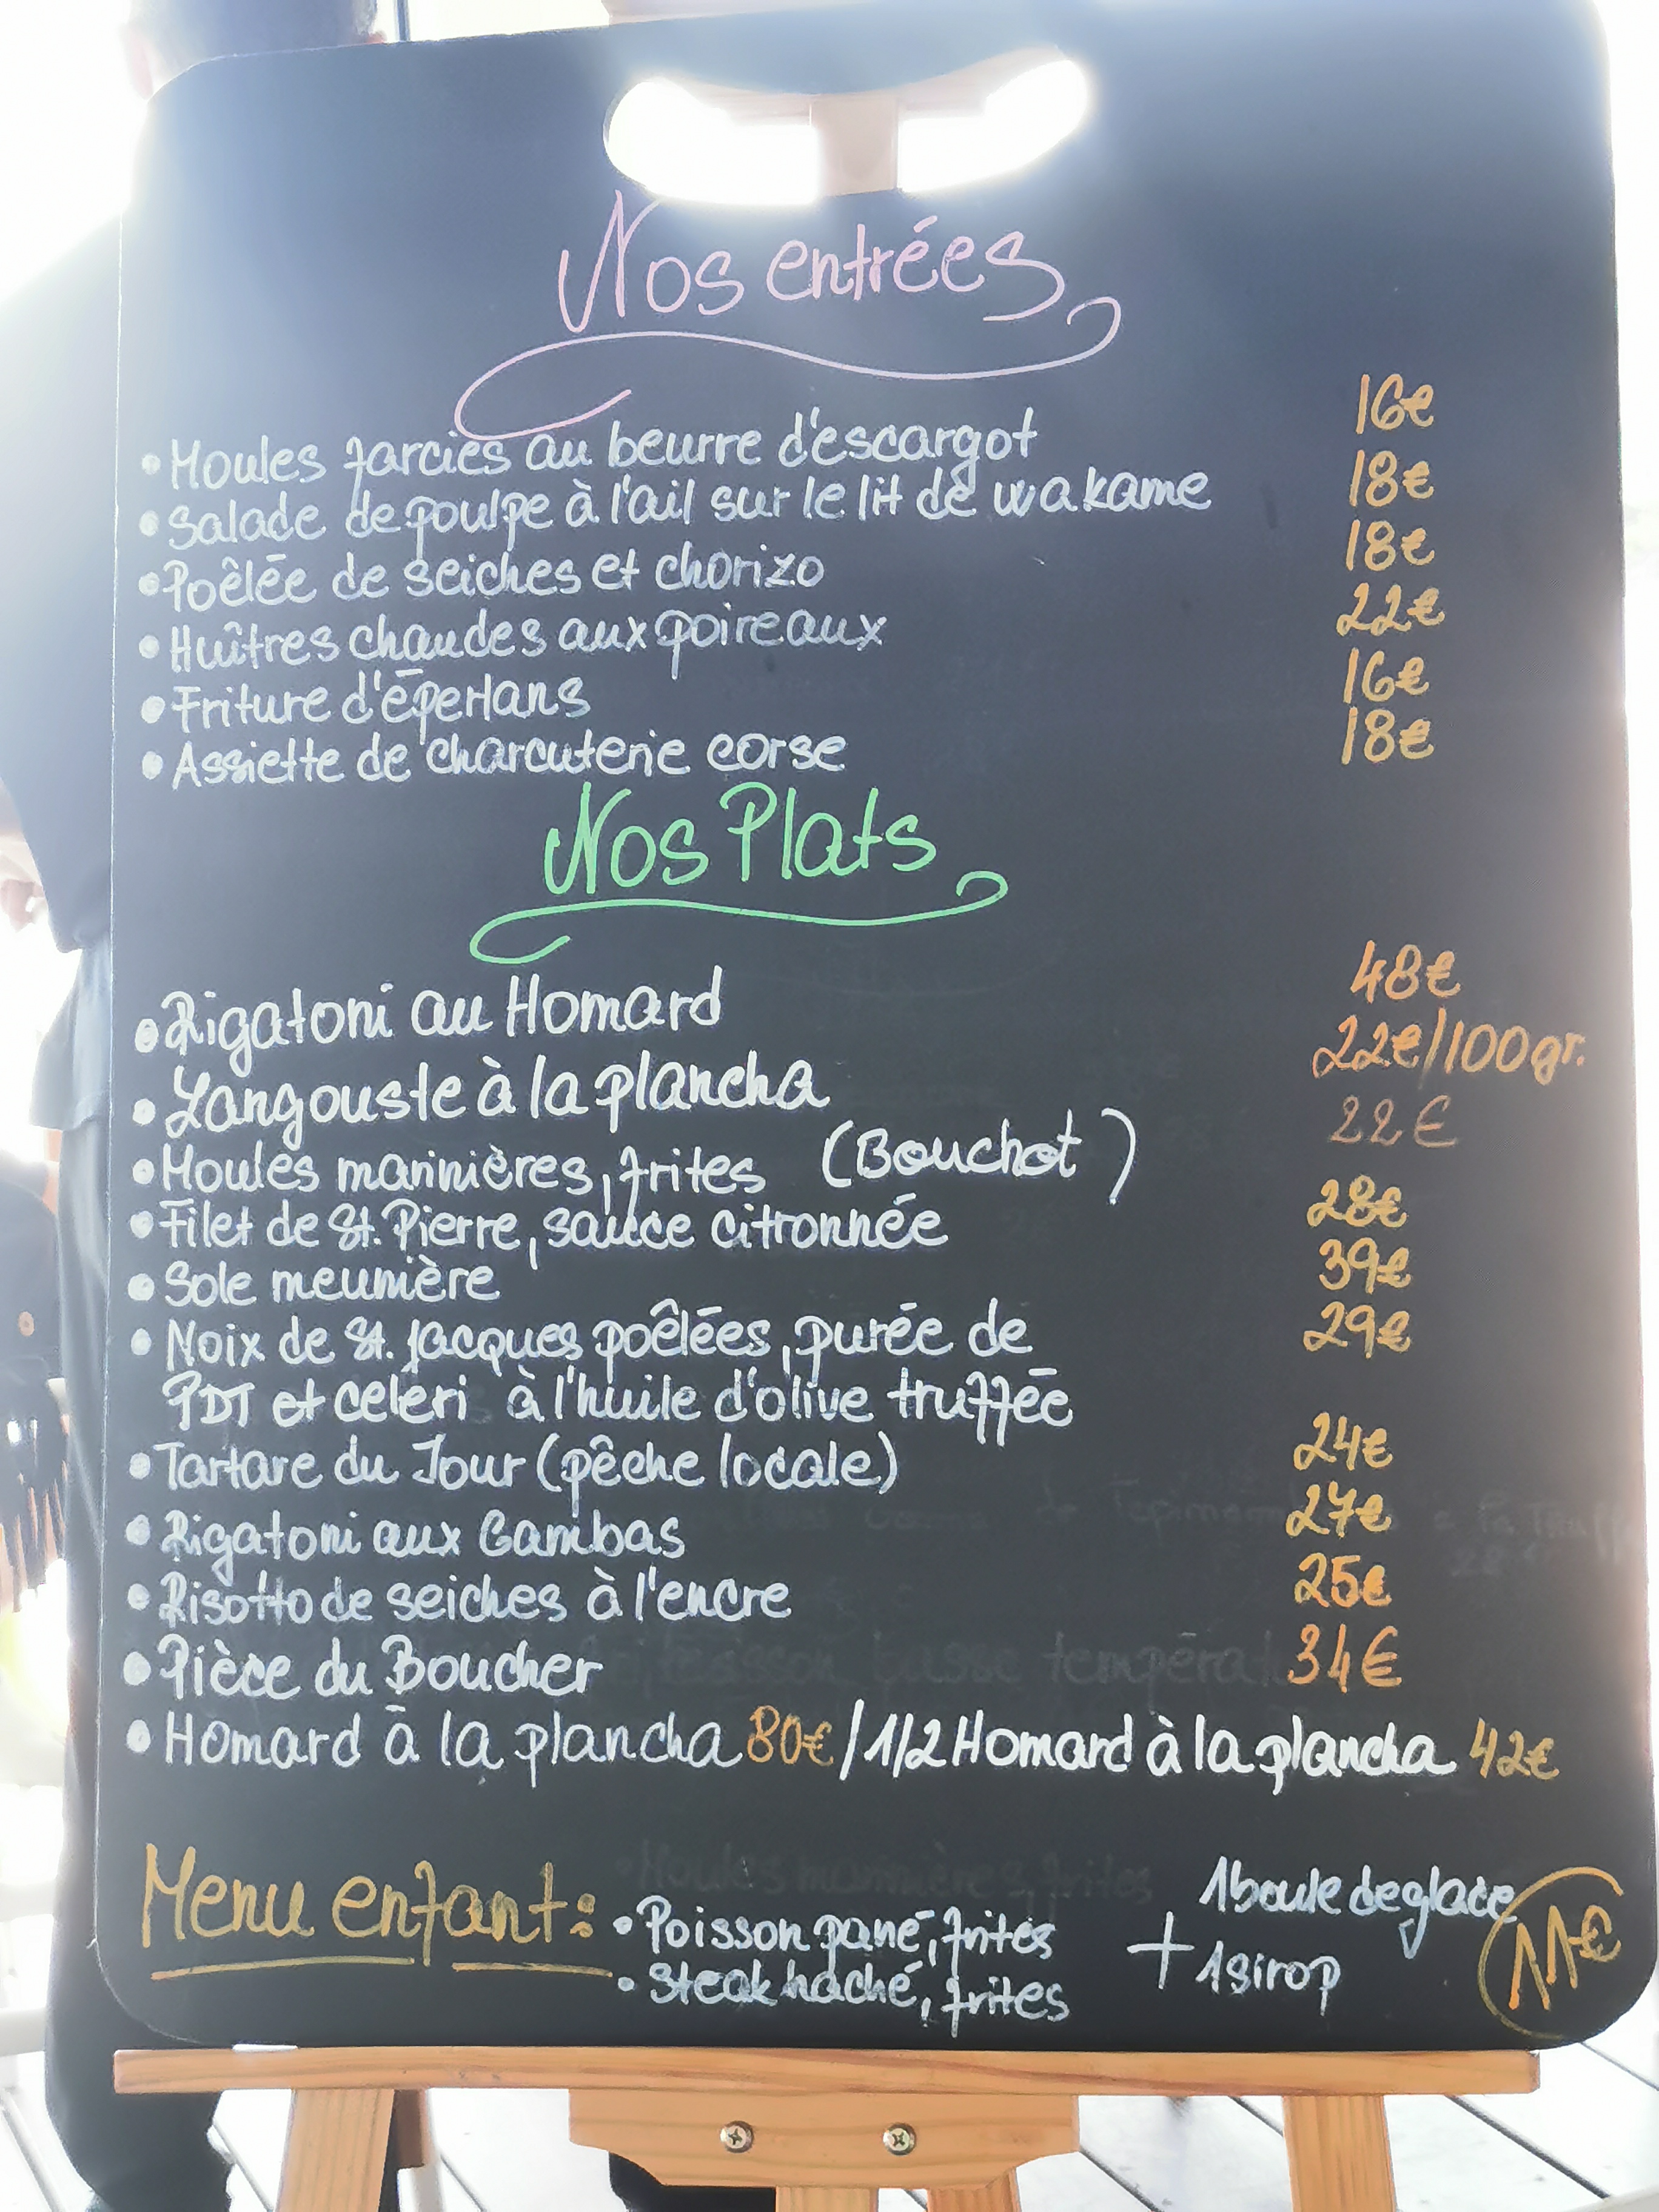 Nos entrées
• Moules farcies au beurre d'escargot 16€
• Salade de poulpe à l'ail sur le lit de wakame 18€
• Poêlée de seiches et chorizo 18€
• Huîtres chaudes aux poireaux 22€
• Friture d'éperlans 16€
• Assiette de charcuterie corse 18€
Nos Plats
• Rigatoni au Homard 48€
• Langouste à la plancha 22€/100gr.
• Moules marinières, frites (Bouchot) 22€
• Filet de St. Pierre, sauce citronnée 28€
• Sole meunière 39€
• Noix de St. Jacques poêlées, purée de 29€
PDT et celeri à l'huile d'olive truffée
• Tartare du Jour (pêche locale) 24€
• Rigatoni aux Gambas 27€
• Risotto de seiches à l'encre 25€
• Pièce du Boucher 34€
• Homard à la plancha 80€ / 1/2 Homard à la plancha 42€
Menu enfant: • Poisson pané, frites + 1 boule de glace 11€
• Steak haché, frites 1 sirop